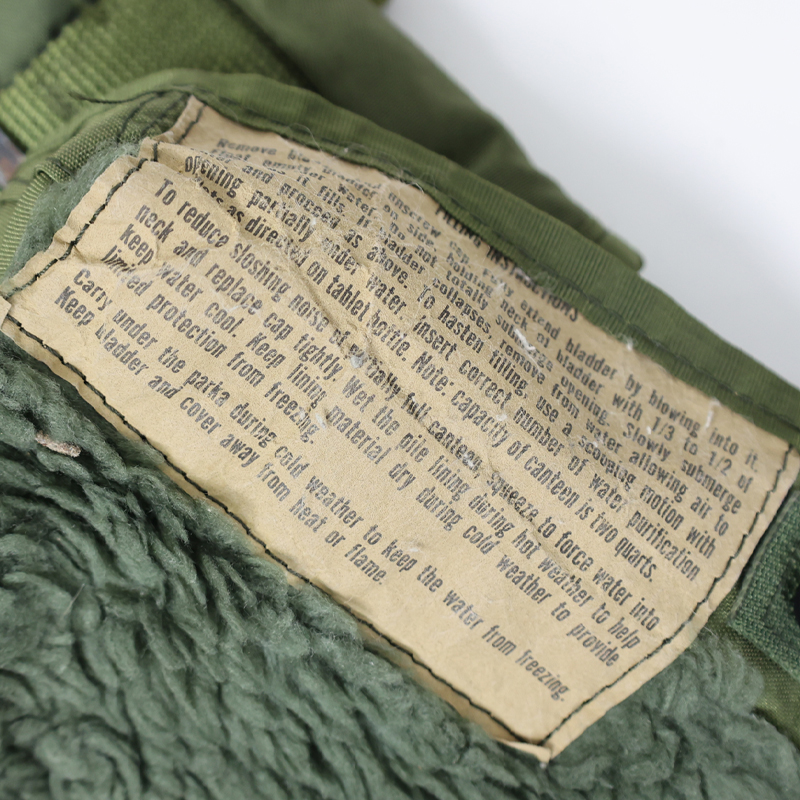 FILLING INSTRUCTIONS
Remove unscrew cap, fully extend bladder by blowing into it.
neck of bladder with 1/3 to 1/2 of
it fills. Do not totally opening. Slowly submerge
and proceed as above. If bladder collapses, remove from water, allowing air to
opening partially under water. To hasten filling, use a scooping motion with
Insert correct number of water purification
as directed on tablet bottle. Note: capacity of canteen is two quarts.
To reduce sloshing noise of partially full canteen squeeze to force water into
neck and replace cap tightly. Wet the pile lining during hot weather to help
keep water cool. Keep lining material dry during cold weather to provide
limited protection from freezing.
Carry under the parka during cold weather to keep the water from freezing.
Keep bladder and cover away from heat or flame.